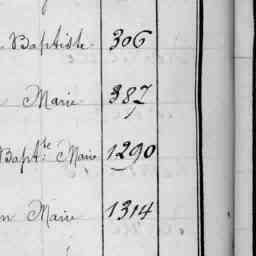 Baptiste 306
Marie 387
Bapt.te Marie 1290
n Marie 1314